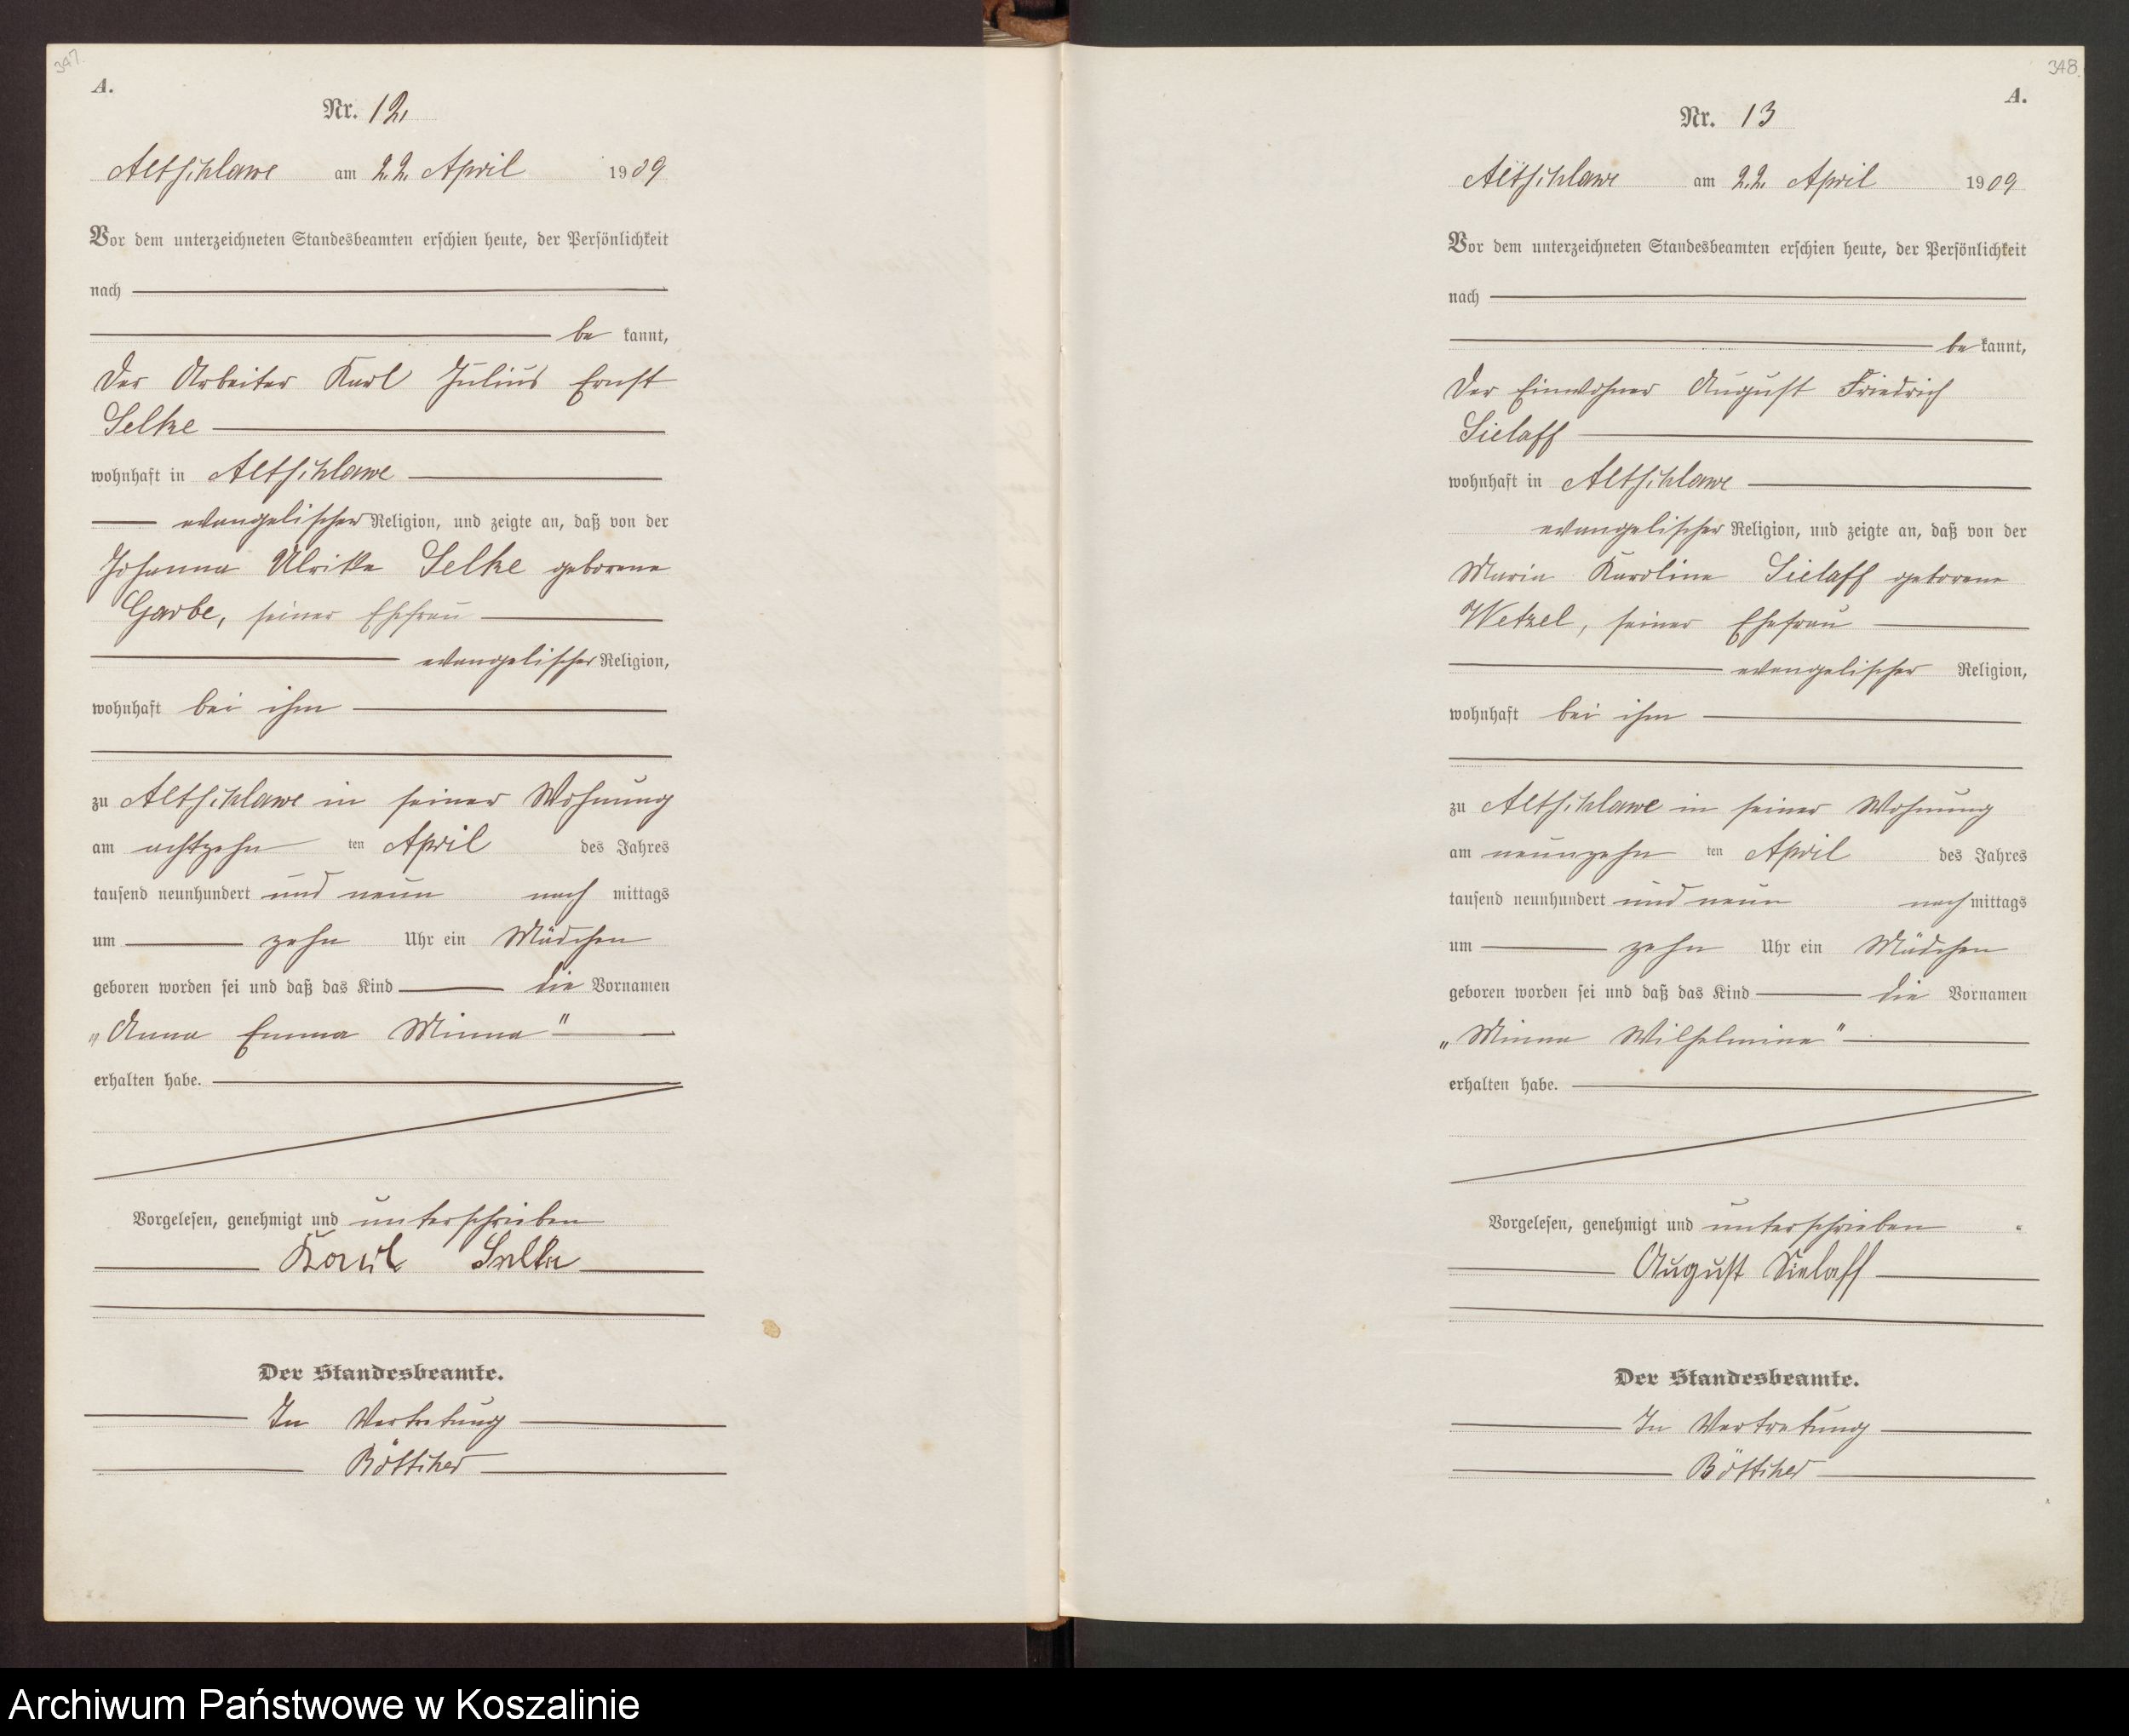 347.
A.
Nr. 12.
Altschlawe am 22. April 1909
Vor dem unterzeichneten Standesbeamten erschien heute, der Persönlichkeit
nach
be kannt,
der Arbeiter Karl Julius Ernst
Selke
wohnhaft in Altschlawe
evangelischer Religion, und zeigte an, daß von der
Johanna Ulrike Selke geborene
Garbe, seiner Ehefrau
evangelischer Religion,
wohnhaft bei ihm
zu Altschlawe in seiner Wohnung
am achtzehn ten April des Jahres
tausend neunhundert und neun nach mittags
um zehn Uhr ein Mädchen
geboren worden sei und daß das Kind die Vornamen
„Anna Emma Minna"
erhalten habe.
Vorgelesen, genehmigt und unterschrieben
Karl Selke
Der Standesbeamte.
In Vertretung
Böttcher
348.
A.
Nr. 13
Altschlawe am 22. April 1909
Vor dem unterzeichneten Standesbeamten erschien heute, der Persönlichkeit
nach
be kannt,
der Einwohner August Friedrich
Sielaff
wohnhaft in Altschlawe
evangelischer Religion, und zeigte an, daß von der
Maria Karoline Sielaff geborene
Wetzel, seiner Ehefrau
evangelischer Religion,
wohnhaft bei ihm
zu Altschlawe in seiner Wohnung
am neunzehn ten April des Jahres
tausend neunhundert und neun nach mittags
um zehn Uhr ein Mädchen
geboren worden sei und daß das Kind die Vornamen
„Minna Wilhelmine"
erhalten habe.
Vorgelesen, genehmigt und unterschrieben
August Sielaff
Der Standesbeamte.
In Vertretung
Böttcher
Archiwum Państwowe w Koszalinie